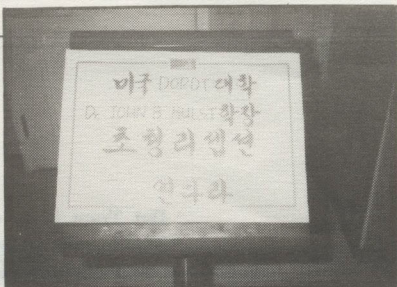 미국 DORDT 대학
Dr. JOHN B. HULST 학장
초청 리셉션
안나라